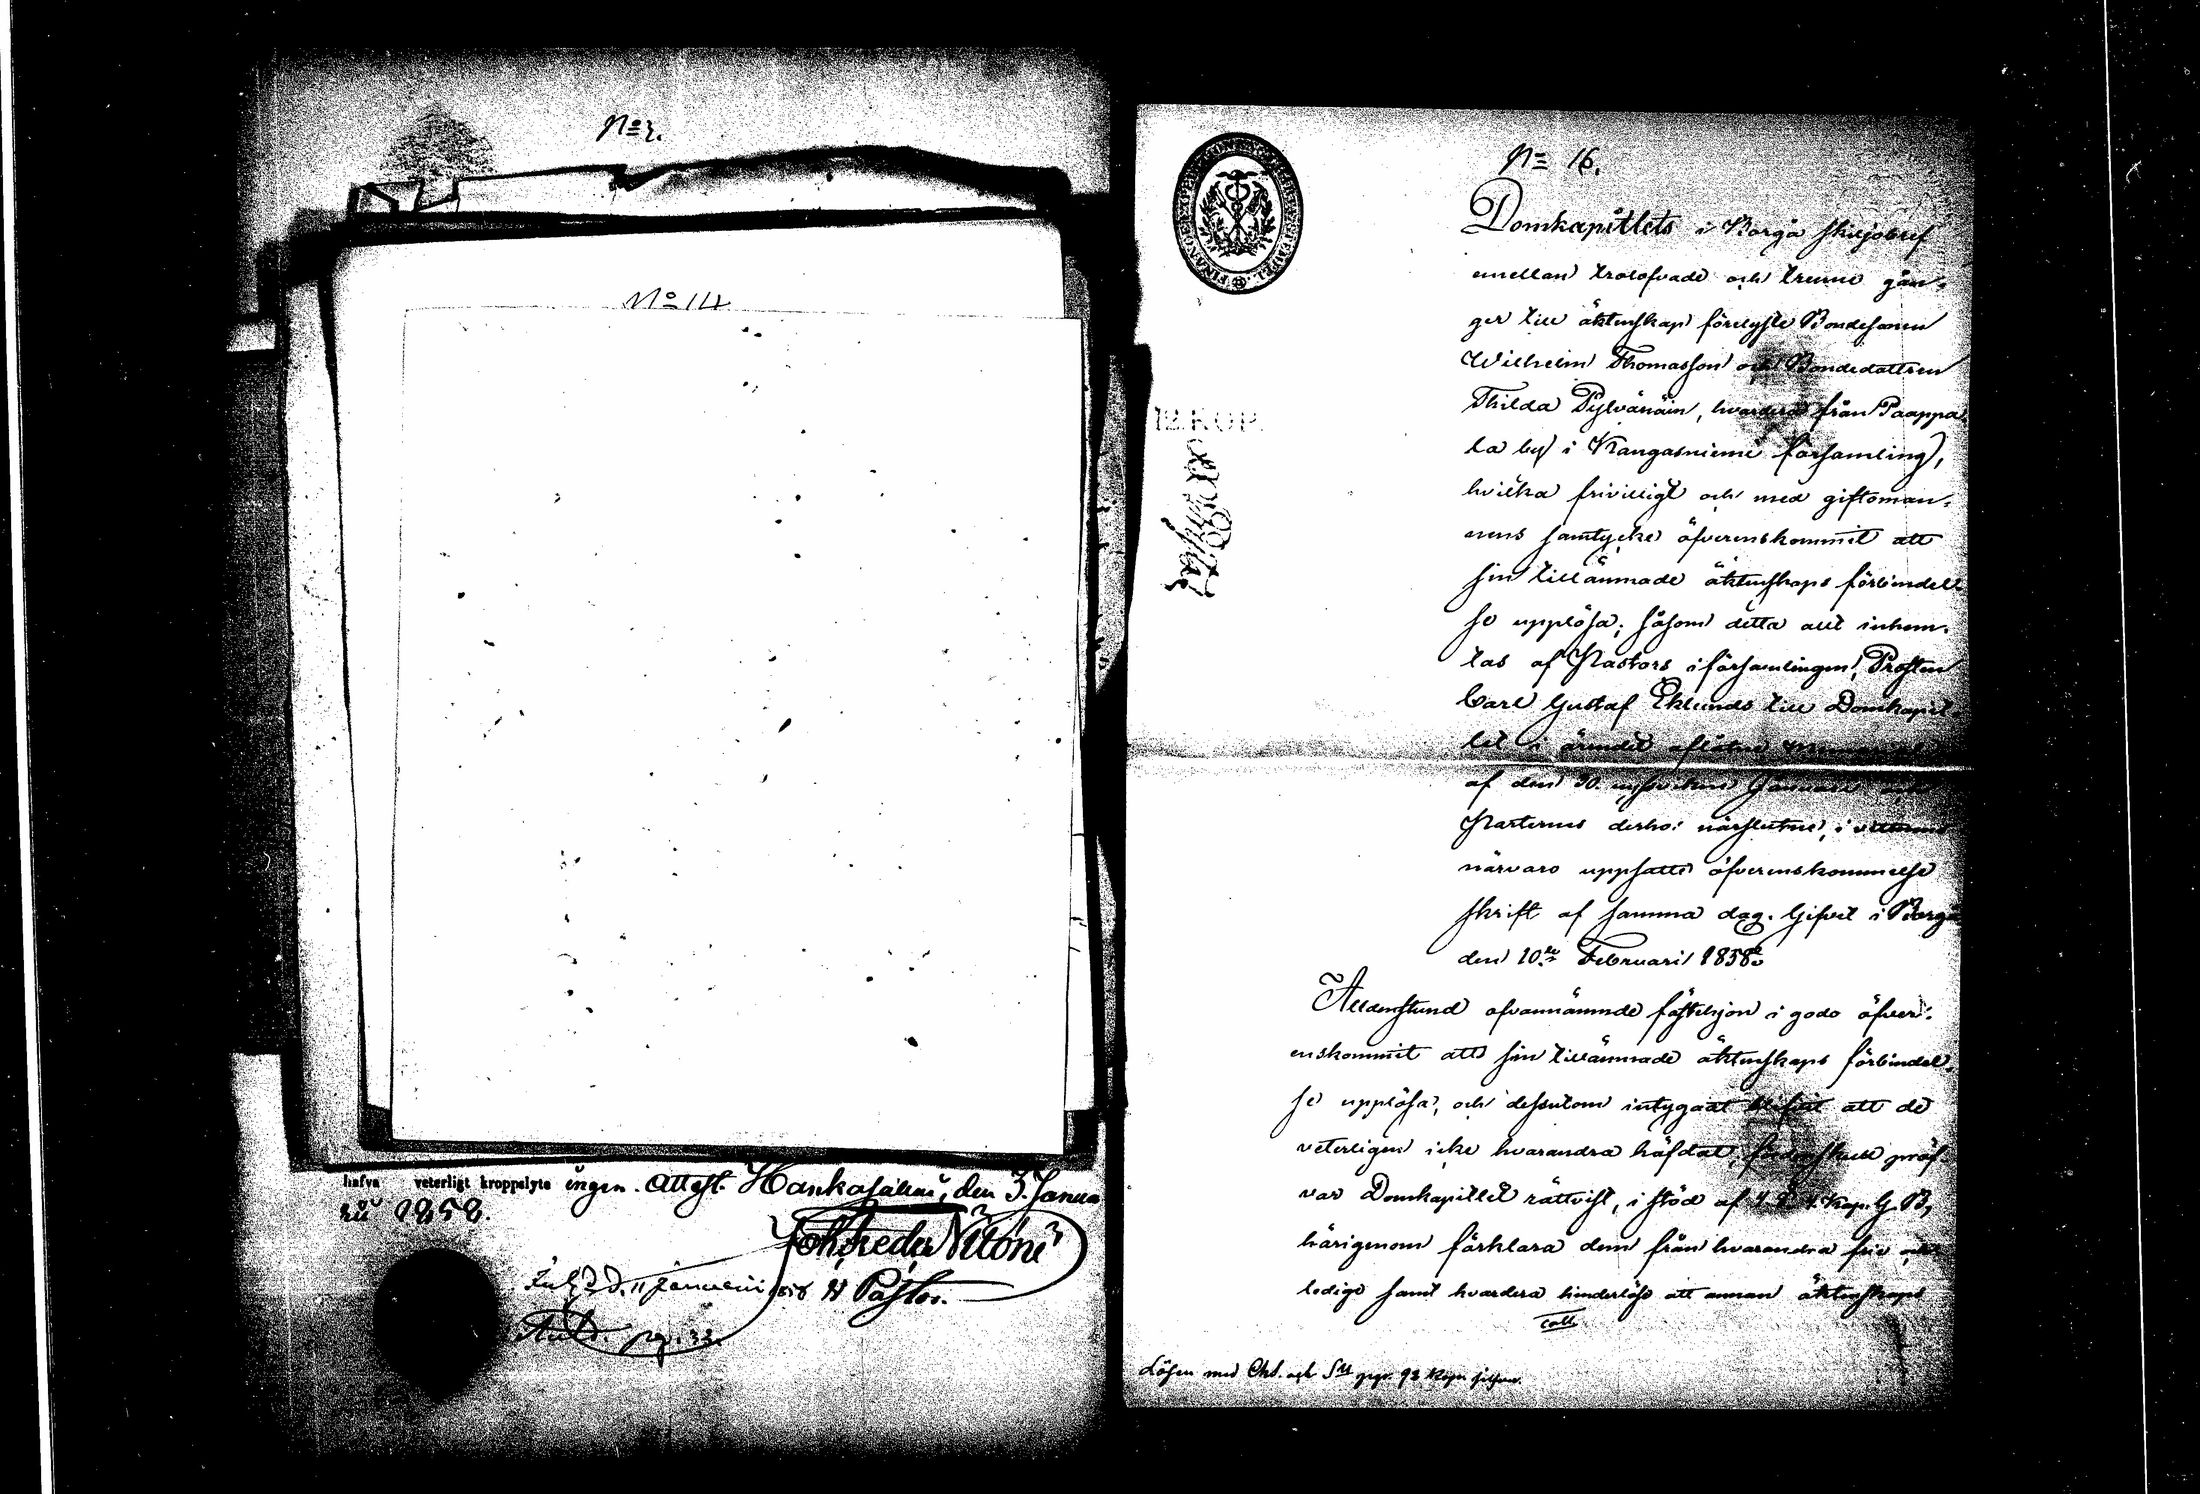 No 2.
No 14
hafva veterligt kroppslyte ingen. Attest. Hankasalmi, den 3. Janua
rii 1858.
Pastor.
No 16.
12 KOP.
Domkapitlets i Borgå skiljobref
emellan trolofvade och trenne gån-
ger till äktenskap förelyste Bondesonen
Wilhelm Thomasson och Bondedottren
Thilda Pylvänäin, hvardera från Paappa
la by i Kangasniemi församling,
hvilka frivilligt och med giftoman-
nens samtycke öfverenskommit att
sin tillämnade äktenskaps förbindel
se upplösa; såsom detta allt inhem-
tas af Pastors i församlingen, Prosten
Carl Gustaf Eklunds till Domkapit-
let i ärendet aflåtne
af den 30. Januari
Parternes derhos närslutne, i vittnens
närvaro uppsatte öfverenskommelse
skrift af samma dag. Gifvit i Borgå
den 10de Februari 1858.
Alldenstund ofvannämnde fästehjon i godo öfver-
enskommit att sin tillämnade äktenskaps förbindel-
se upplösa, och dessutom intygadt blifvit att de
veterligen icke hvarandra häfdat, pröf-
var Domkapitlet rättvist, i stöd af 4 Kap. G. B.,
härigenom förklara dem från hvarandra fria och
ledige samt hvardera hinderlöse att annan äktenskaps
Coll.
Lösen med Chd. och